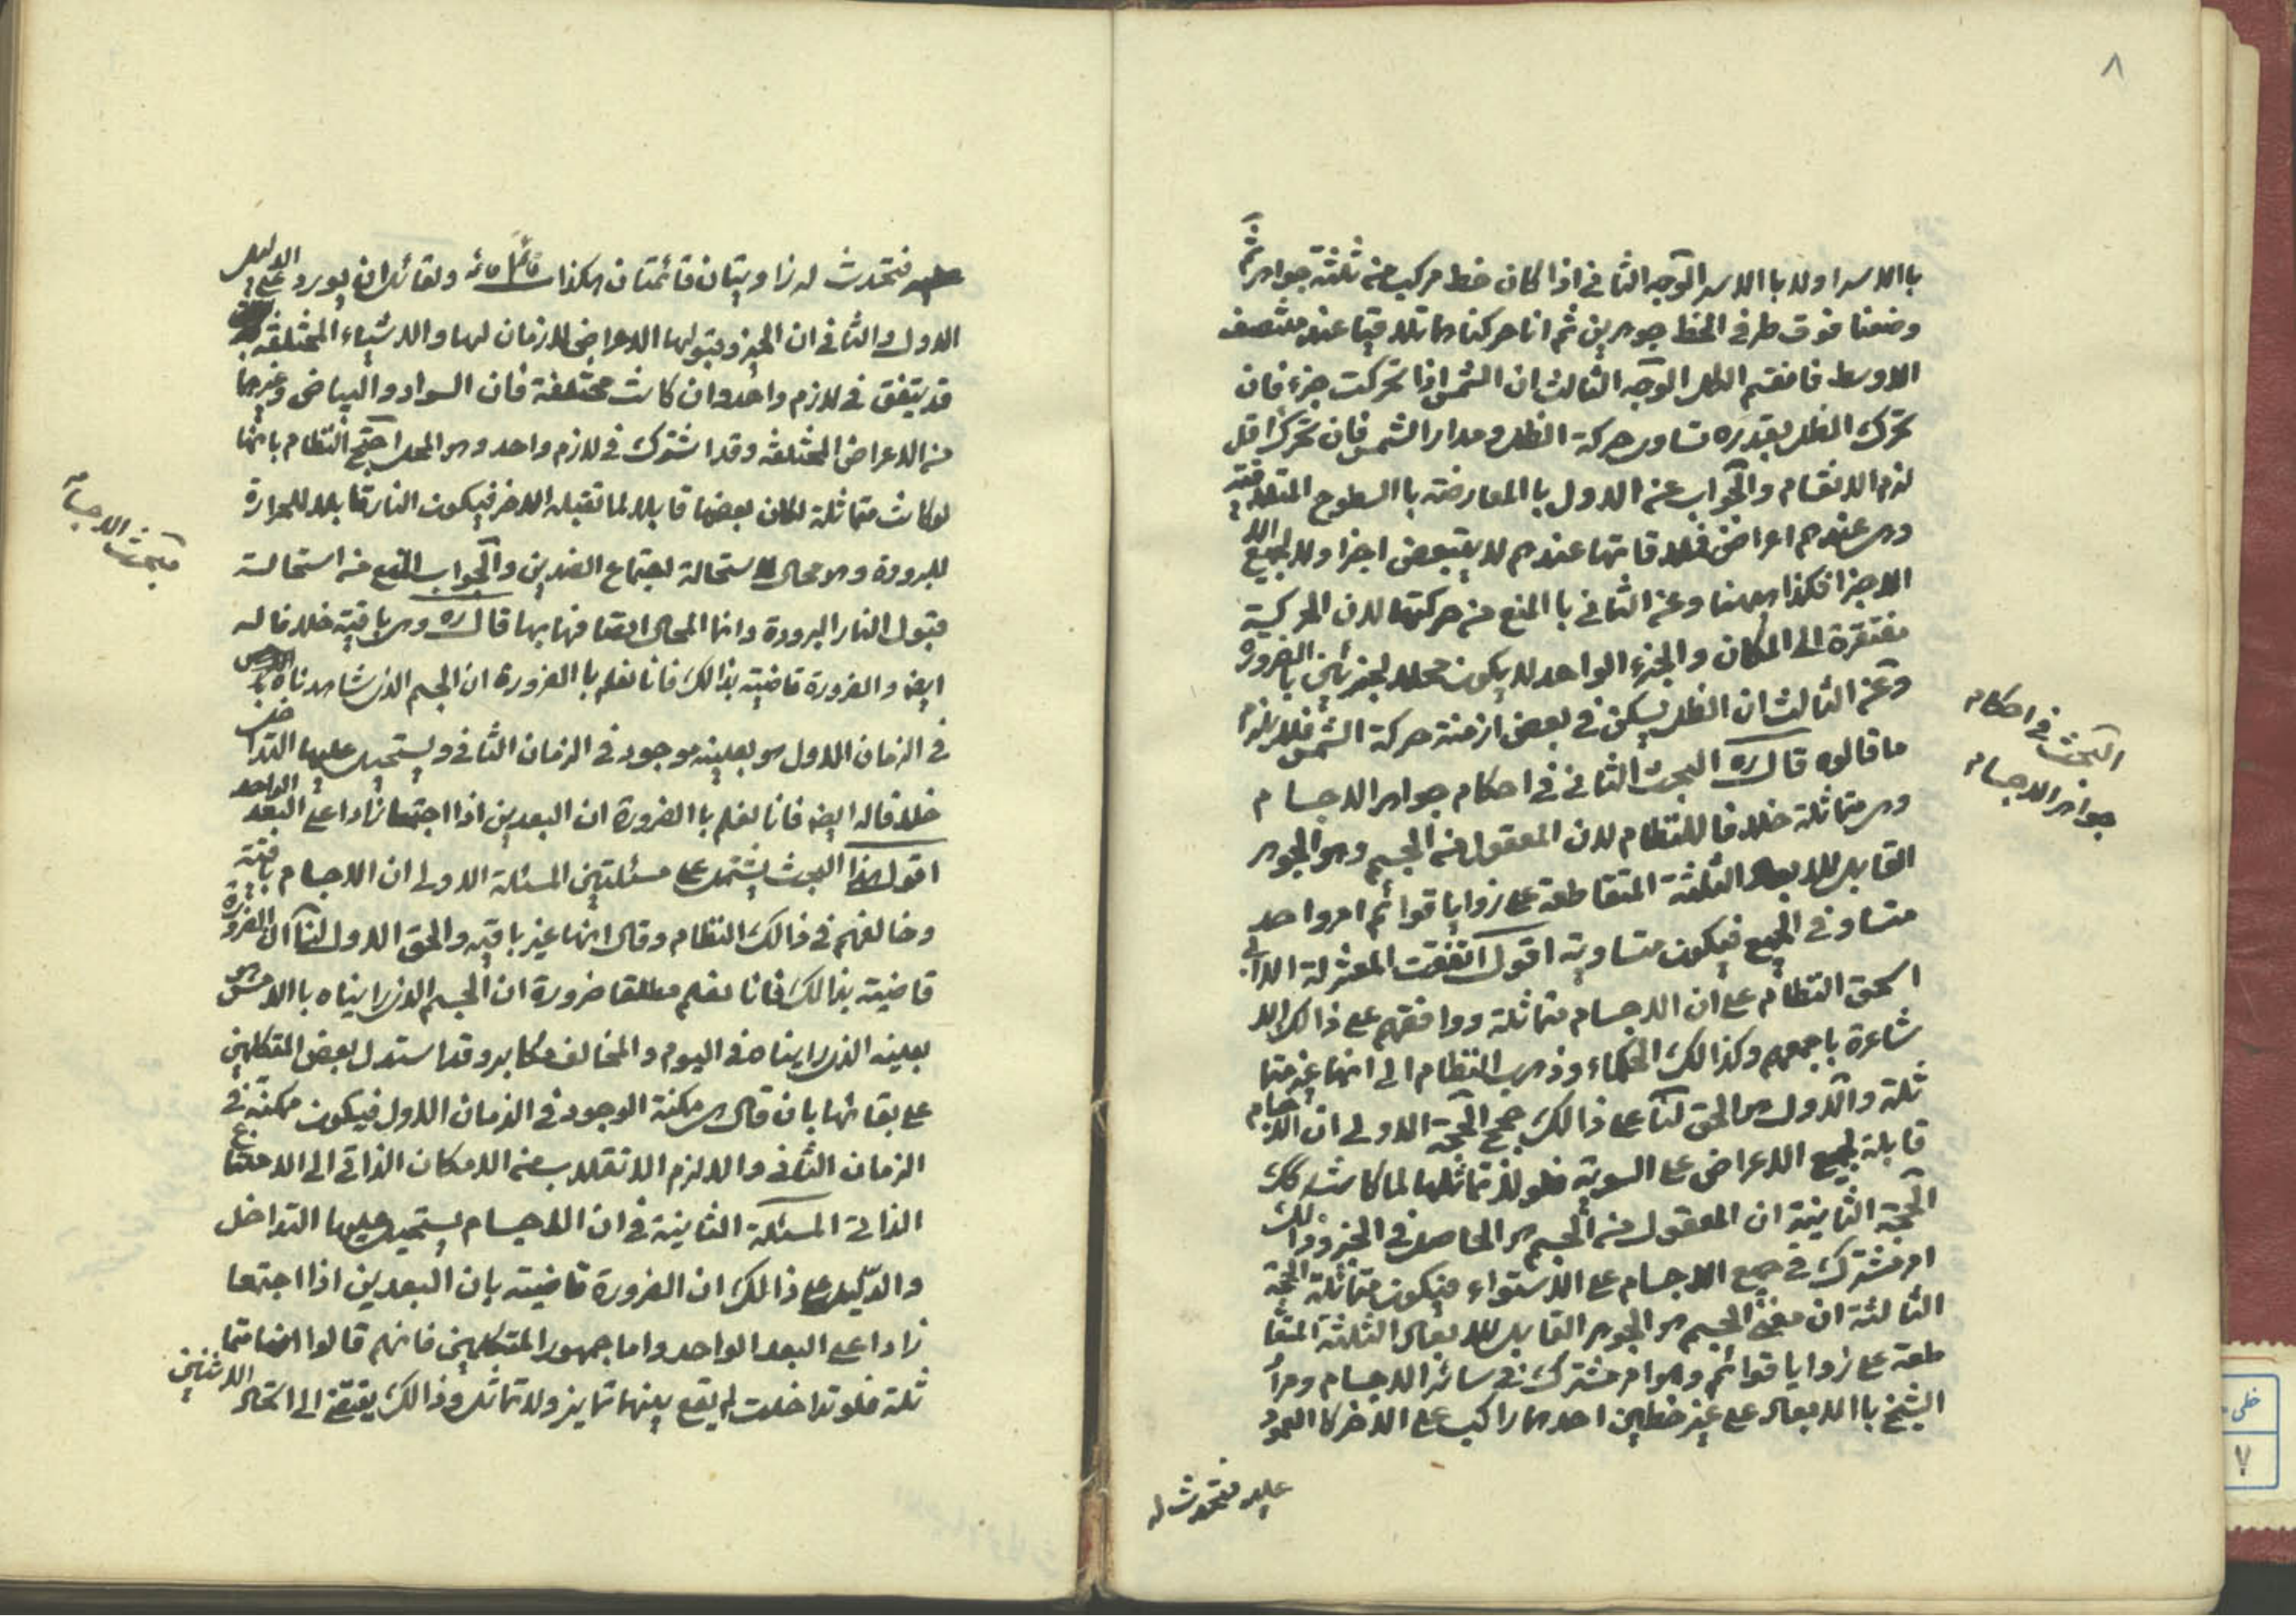 ٨
باالاسر اولا باالاسر الوجه الثاني اذا كان خط مركب من ثلثة جواهر ثم
وضعنا فوق طرفي الخط جوهرين ثم انا حركناهما تلاقيا عند منتصف
الاوسط فانقسم الكل الوجه الثالث ان الشمس اذا تحركت جزء فان
تحرك الظل بقدره تساوى حركة الظل ومدار الشمس فان تحرك اقل
لزم الانقسام والجواب عن الاول با المعارضة با السطوح المتلاقية
وهى عندهم اعراض فملاقاتها عندهم لا بتبعض اجزا ولا لجميع
الاجزا فكذا ههنا وعن الثاني با المنع من حركتهما لان الحركة
مفتقرة الى المكان والجزء الواحد لا يكون محلا لجزئين با الضرورة
وعن الثالث ان الظل يسكن في بعض ازمنة حركة الشمس فلا يلزم
ما قالوه قال ره البحث الثاني في احكام جواهر الاجسام
البحث في احكام
جواهر الاجسام
وهى متماثلة خلافا للنظام لان المعقول من الجسم وهو الجوهر
القابل للابعاد الثلثة المتقاطعة على زوايا قوائم امر واحد
متساو في الجميع فيكون متساوية اقول اتفقت المعتزلة الا ابي
اسحق النظام على ان الاجسام متماثلة ووافقهم على ذالك الا
شاعرة باجمعهم وكذالك الحكماء وذهب النظام الى انها غير متما
ثلة والاول هو الحق لنا على ذالك حجج الحجة الاولى ان الاجسام
قابلة لجميع الاعراض على السوية فلولا تماثلها لما كانت كك
الحجة الثانية ان المعقول من الجسم هو الحاصل في الحيز وذالك
امر مشترك في جميع الاجسام على الاستواء فيكون متماثلة الحجة
الثالثة ان معنى الجسم هو الجوهر القابل للابعاد الثلثة المتقا
طعة على زوايا قوائم وهو امر مشترك في سائر الاجسام ومراد
الشيخ با الابعاد على غير خطين احدهما راكب على الاخر كا العمود
عليه فتحدث له
فتحدث له زاويتان قائمتان هكذا قائمة قائمة ولقائل ان يورد على الدليل
الاول والثاني ان الحيز وقبولها الاعراض لازمان لها والاشياء المختلفة
قد يتفق في لازم واحد وان كانت مختلفة فان السواد والبياض وغيرهما
من الاعراض المختلفة وقد اشترك في لازم واحد وهو المحل احتج النظام بانها
لو كانت متماثلة لكان بعضها قابلا لما تقبله الاخر فيكون النار قابلا للحرارة
مبحث الاجسام
للبرودة وهو محال لاستحالة اجتماع الضدين والجواب المنع من استحالة
قبول النار البرودة وانما المحال اتصافها بها قال ره وهى باقية خلافا له
ايضا والضرورة قاضية بذالك فانا نعلم با الضرورة ان الجسم الذى شاهدناه
في الزمان الاول هو بعينه موجود في الزمان الثاني ويستحيل عليها التداخل
خلافا له ايضا فانا نعلم با الضرورة ان البعدين اذا اجتمعا زادا على البعد الواحد
اقول هذا البحث يشتمل على مسئلتين المسئلة الاولى ان الاجسام باقية
وخالفهم في ذالك النظام وقال انها غير باقيه والحق الاول لنا ان الضرورة
قاضية بذالك فانا نعلم مطلقا ضرورة ان الجسم الذى راينا ه باالامس هو
بعينه الذى راينا ه في اليوم والمخالف مكابر وقد استدل بعض المتكلمين
على بقائها بان قال هى ممكنة الوجود في الزمان الاول فيكون ممكنة في
الزمان الثاني والا لزم الانقلاب من الامكان الذاتي الى الامتناع
الذاتي المسئلة الثانية في ان الاجسام يستحيل عليها التداخل
والدليل على ذالك ان الضرورة قاضية بان البعدين اذا اجتمعا
زادا على البعد الواحد واما جمهور المتكلمين فانهم قالوا انها متما
ثلة فلو تداخلت لم يقع بينها تمايز ولا تماثل وذالك يقتضي الى اتحاد الاثنين
خطى
٧